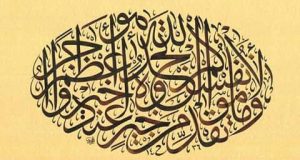 وما تقدموا لأنفسكم من خير تجدوه عند الله هو خيرا وأعظم أجرا